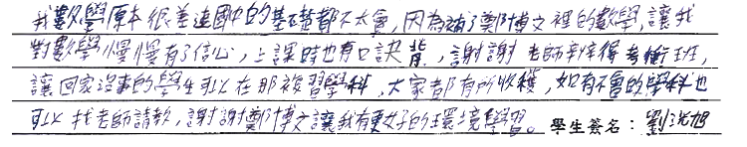 我數學原本很差連國中的基礎都不太會,因為補了鄭博文裡的數學,讓我
對數學慢慢有了信心,上課時也有口訣背,謝謝老師幸辛得考衝班,
讓回家沒事的學生可以在那複習學科,大家都有所收穫,如有不會的學科也
可以找老師請教,謝謝鄭博文讓我有更好的環境學習。學生簽名:劉